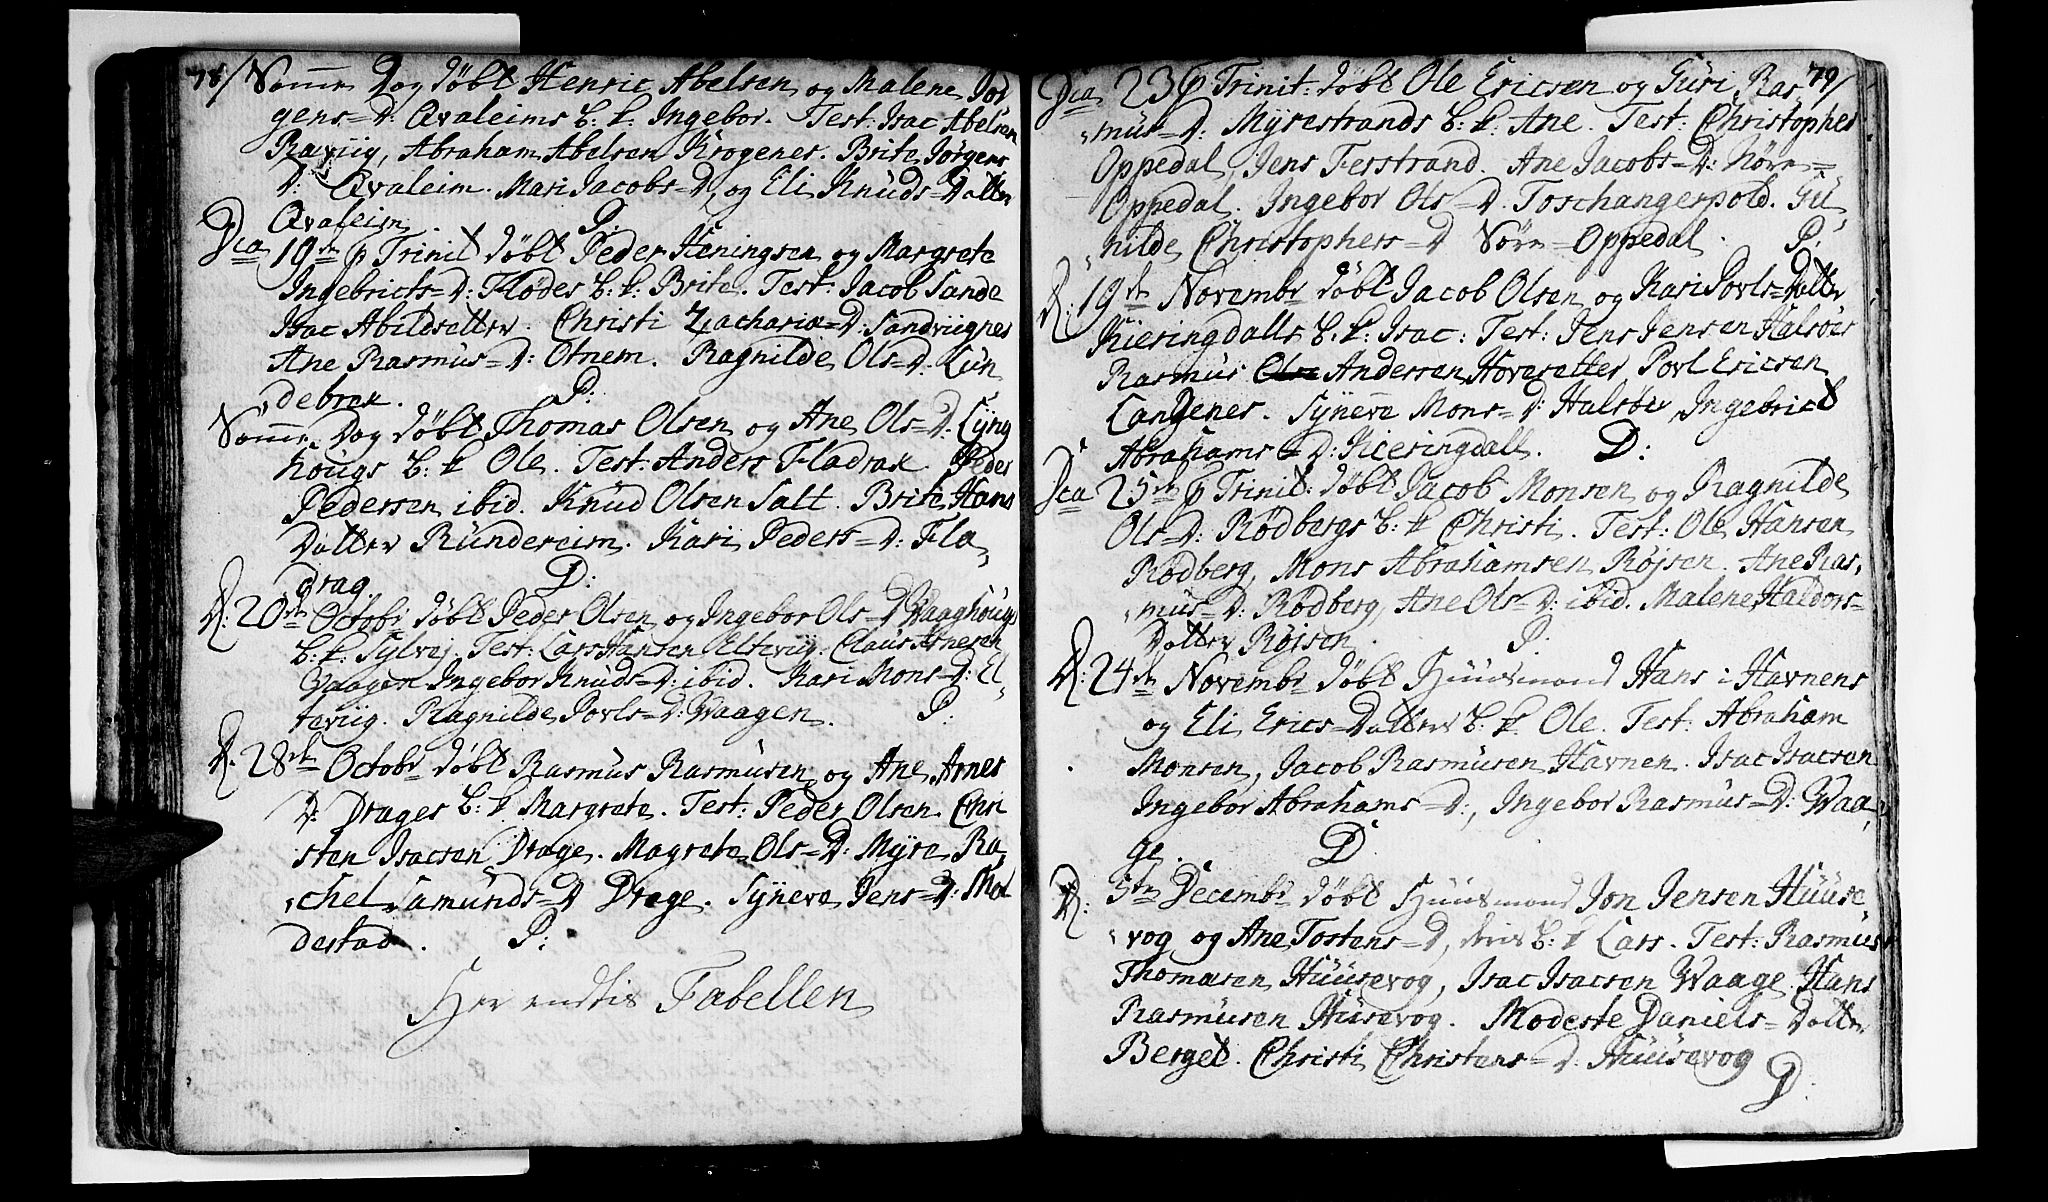 78/ Samme Dag døbt Henric Abelsen og Malene Jør
gens=D: Qvaleims b: k. Ingebor. Test: Isac Abelsen
Raviig, Abraham Abelsen Krogenes. Brite Jørgens
D: Qvaleim. Mari Jacobs=D, og Eli Knuds=Datter
Qvaleim. P:
Dca 19de p Trinit døbt Peder Heningsen og Margrete
Ingebricts=D: Flødes b: k: Brite. Test: Jacob Sande
Isac Abildsetter. Christi Zacharix=D: Sandviignes
Ane Rasmus=D: Otnem. Ragnilde Ols=D: Lun
debrek. P:
Samme Dag døbt Thomas Olsen og Ane Ols=D: Lyng
hougs b: k Ole. Test: Anders Fladrak. Peder
Pedersen ibid. Knud Olsen Salt. Brite Hans
Datter Rundereim. Kari Peders=D: Fla
drag. D:
D: 20de Octobr døbt Peder Olsen og Ingebor Ols=D Waaghougs
b: k: Sylvej. Test: Lars Hansen Eltevig. Claus Arnesen
Waagen Ingebor Knuds=D: ibid. Kari Mons=D: El
teviig. Ragnilde Povls=D: Waagen. P:
D. 28de Octobr døbt Rasmus Rasmusen og Ane Arnes
D: Drages b: k Margrete. Test: Peder Olsen Chri
sten Isacsen Drage. Magrete Ols=D: Myre Ra
chel Samunds=D Drage. Syneva Jens=D: Mol
destad. P:
Her endtis Tabellen
79/
Dca 23 p Trinit: døbt Ole Ericsen og Guri Ras
mus=D: Myrestrands b: k. Ane. Test: Christopher
Oppedal, Jens Ferstrand. Ane Jacobs=D: Nørn=
Oppedal. Ingebor Ols=D. Toschangerpold. Gu
nilde Christophers=D Sørn=Oppedal. P:
D: 19de Novembr døbt Jacob Olsen og Kari Povls=Datter
Kieringdalls b. k: Isac: Test: Jens Jensen Halsøes
Rasmus Andersen Hovesetter Povl Ericsen
Langenes. Syneva Mons=D: Halsøer, Ingebrict
Abrahams=D: Kieringdall. D:
Dca 25de p Trinit: døbt Jacob Monsen og Ragnilde
Ols=D: Rødbergs b: k Christi. Test: Ole Hansen
Rødberg, Mons Abrahamsen Røjsen. Ane Ras
mus=D: Rødberg, Ane Ols=D: ibid. Malene Haldors=
Datter Røjsen. P:
D: 24de Novembr døbt Huusmand Hans i Havnens
og Eli Erics=Datters b: k Ole. Test: Abraham
Monsen, Jacob Rasmusen Havnen. Isac Isacsen
Ingebor Abrahams=D:, Ingebor Rasmus=D: Waa
ge. D
D: 5te Decembr døbt Huusmand Jon Jensen Huuse
vog og Ane Tostens=D, b: k Lars. Test: Rasmus
Thomasen Huusevog, Isac Isacsen Waage. Hans
Rasmusen Husevog. Modeste Daniels=Datter
Berget. Christi Christens=D: Huusevog
D: